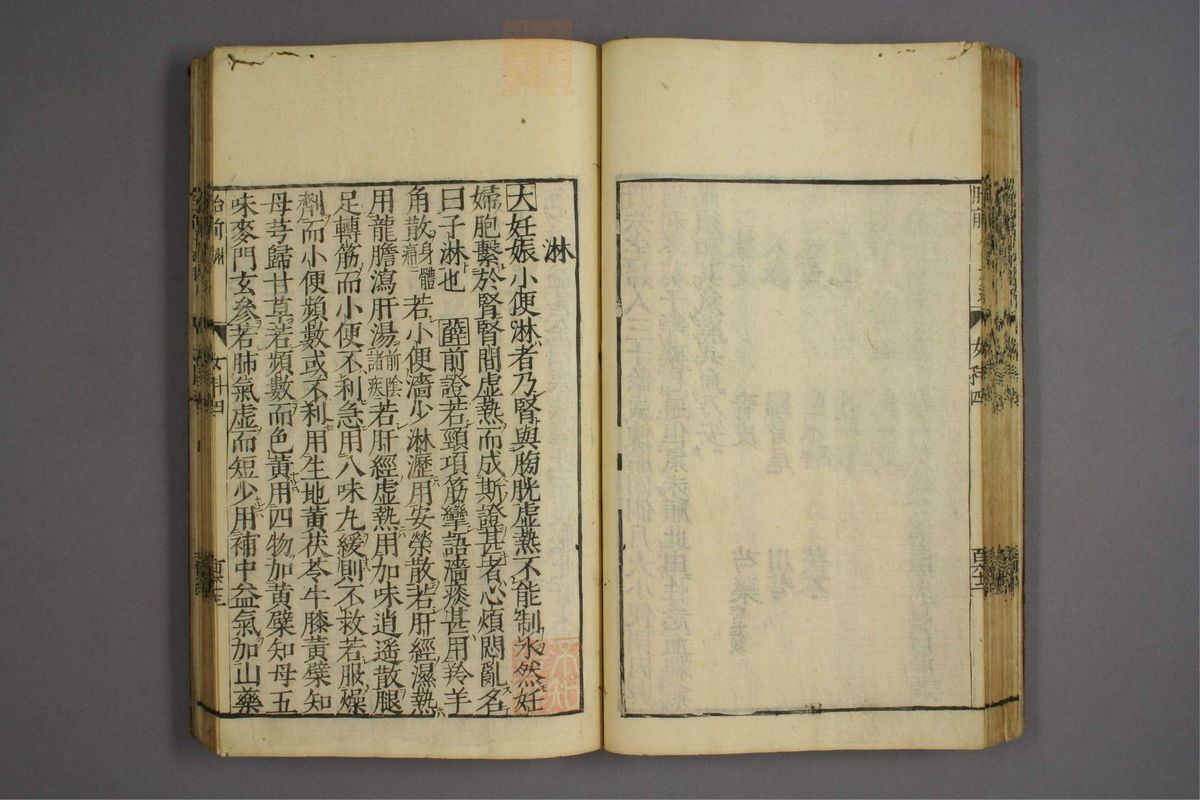 淋
大妊娠小便淋者乃腎與膀胱虛熱不能制水然妊
婦胞繫於腎腎間虛熱而成斯證甚者心煩悶亂名
曰子淋也 薛前證若頸項筋攣語澀痰甚用羚羊
角散身體痛若小便澀少淋瀝用安榮散若肝經濕熱
用龍膽瀉肝湯前陰諸疾若肝經虛熱用加味逍遥散腿
足轉筋而小便不利急用八味丸緩則不救若服燥
劑而小便頻數或不利用生地黃茯苓牛膝黃蘗知
母芎歸甘草若頻數而色黃用四物加黃蘗知母五
味麥門玄參若肺氣虛而短少用補中益氣加山藥
胎前 淋
女科四
女科四